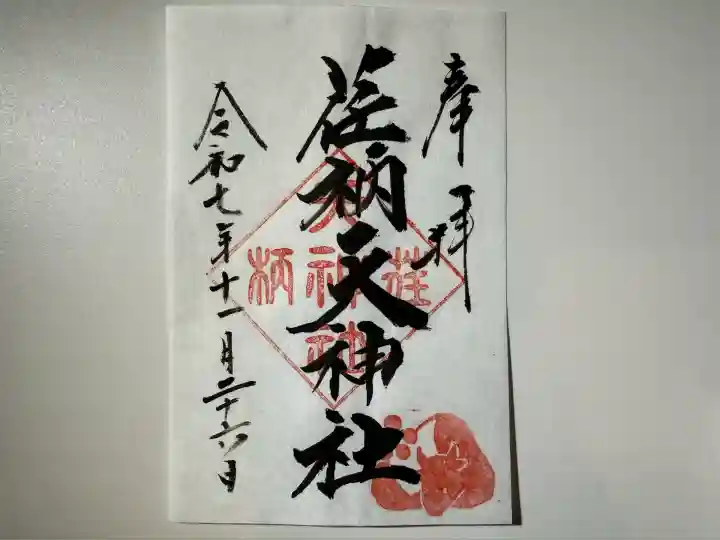 奉拝
荏柄天神社
令和七年十一月二十六日
荏
天神社
柄